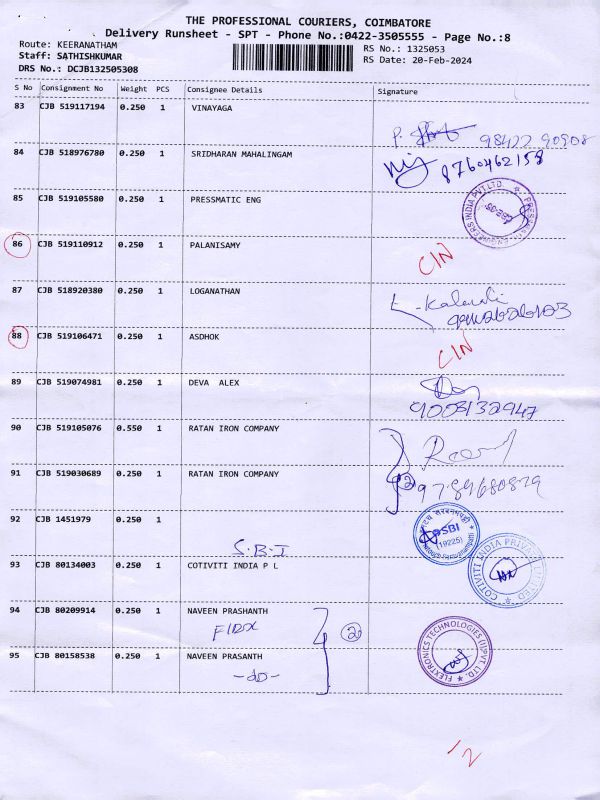 THE PROFESSIONAL COURIERS, COIMBATORE
Delivery Runsheet - SPT - Phone No.:0422-3505555 - Page No.:8
Route: KEERANATHAM RS No.: 1325053
Staff: SATHISHKUMAR RS Date: 20-Feb-2024
DRS No.: DCJB132505308
S No Consignment No Weight PCS Consignee Details Signature
83 CJB 519117194 0.250 1 VINAYAGA
P. 98422 90908
84 CJB 518976780 0.250 1 SRIDHARAN MAHALINGAM
8760462158
85 CJB 519105580 0.250 1 PRESSMATIC ENG
86 CJB 519110912 0.250 1 PALANISAMY CIN
87 CJB 518920380 0.250 1 LOGANATHAN
88 CJB 519106471 0.250 1 ASDHOK CIN
89 CJB 519074981 0.250 1 DEVA ALEX
9003132947
90 CJB 519105076 0.550 1 RATAN IRON COMPANY
91 CJB 519030689 0.250 1 RATAN IRON COMPANY 2
9789680879
92 CJB 1451979 0.250 1
S.B.I
SBI
(19225)
93 CJB 80134003 0.250 1 COTIVITI INDIA P L
COTIVITI INDIA PRIVATE LIMITED
94 CJB 80209914 0.250 1 NAVEEN PRASHANTH
2
FLEXTRONICS TECHNOLOGIES (I) PVT. LTD.
95 CJB 80158538 0.250 1 NAVEEN PRASANTH
-do-
2